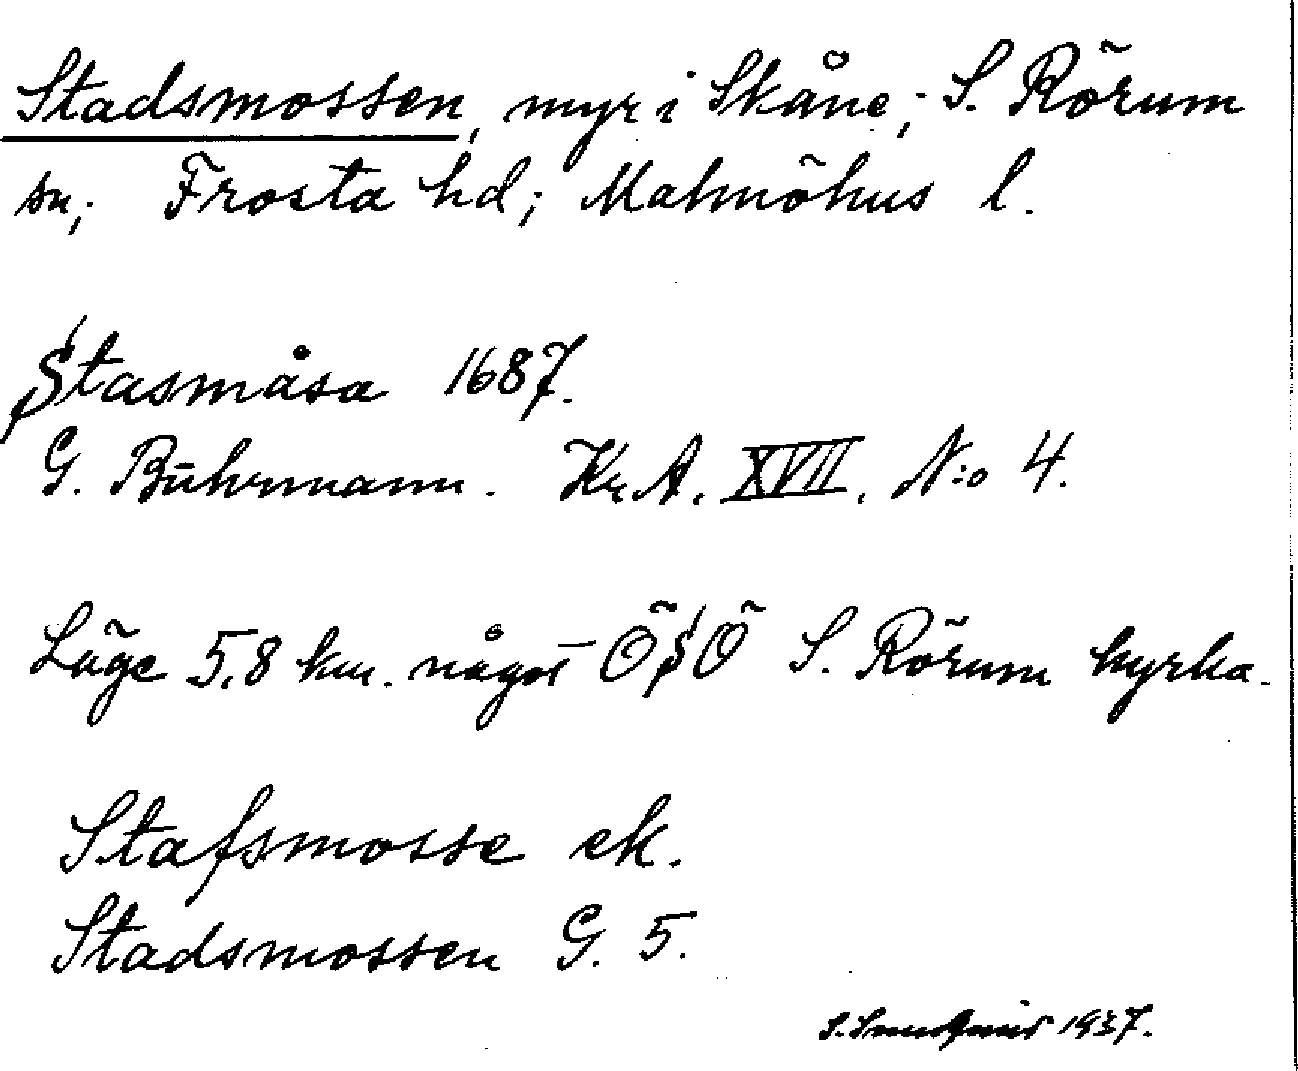 Stadsmossen, myr i Skåne; S. Rörum
sn; Frosta hd; Malmöhus l.
Stasmåsa 1687.
G. Buhrmann. Kr. A. XVII. N:o 4.
Läge 5,8 km. något ÖSÖ S. Rörum kyrka.
Stafsmosse ek.
Stadsmossen G. 5.
1937.